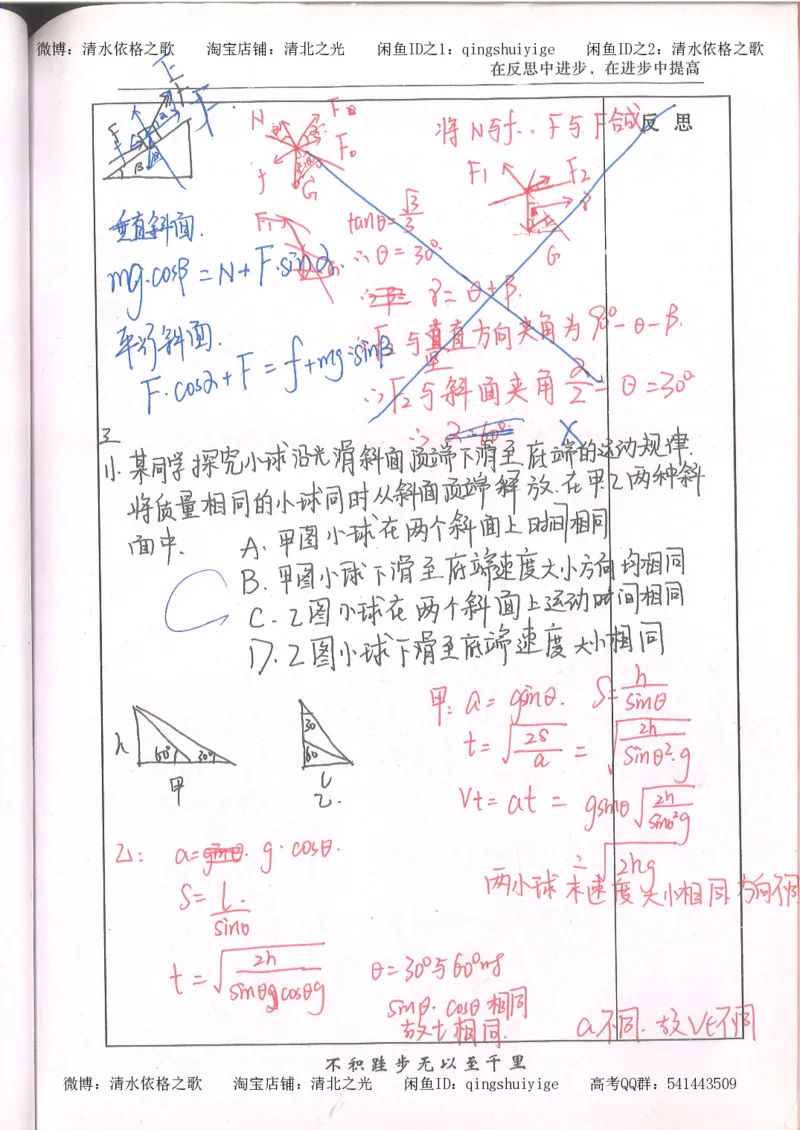 微博：清水依格之歌　淘宝店铺：清北之光　闲鱼ID之1：qingshuiyige　闲鱼ID之2：清水依格之歌
在反思中进步，在进步中提高
反 思
将 N与f. F与F合成
N F② F① f G
F1 F2 G
垂直斜面.
mg·cosβ = N + F·sinα.
平行斜面.
F·cosα + F = f + mg·sinβ
tanθ = √3/3
∴ θ = 30°
γ = θ + β.
∴ F2 与垂直方向夹角为 90° - θ - β.
∴ F2 与斜面夹角 α/2 - θ = 30°
∴ α = 60°.
某同学探究小球沿光滑斜面顶端下滑至底端的运动规律.
将质量相同的小球同时从斜面顶端释放.在甲.乙两种斜
面中.
A. 甲图小球在两个斜面上时间相同
B. 甲图小球下滑至底端速度大小方向均相同
C. 乙图小球在两个斜面上运动时间相同
D. 乙图小球下滑至底端速度大小相同
C
h 60° 30° 甲
30 60 l 乙.
甲: a = gsinθ. S = h/sinθ
t = √(2S/a) = √(2h/sinθ²·g)
Vt = at = gsinθ √(2h/sinθ²g)
= √2hg
两小球末速度大小相同 方向不同
乙: a = g·cosθ.
S = l/sinθ
t = √(2h/sinθgcosθg)
θ = 30°与60°时
sinθ·cosθ相同
故t相同.
a不同.故Vt不同
不积跬步无以至千里
微博：清水依格之歌　淘宝店铺：清北之光　闲鱼ID：qingshuiyige　高考QQ群：541443509